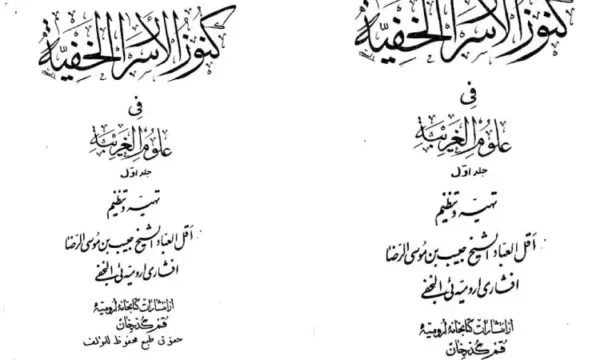 كنوز الأسرار الخفية
في
علوم الغريبة
جلد اول
تهيه وتنظيم
أقل العباد الشيخ حبيب بن موسى الرضا
افشارى اروميه ئى النجفي
از انتشارات كتابخانه اروميه
قم گذرخان
حقوق طبع محفوظ للمؤلف
كنوز الأسرار الخفية
في
علوم الغريبة
جلد اول
تهيه وتنظيم
أقل العباد الشيخ حبيب بن موسى الرضا
افشارى اروميه ئى النجفي
از انتشارات كتابخانه اروميه
قم گذرخان